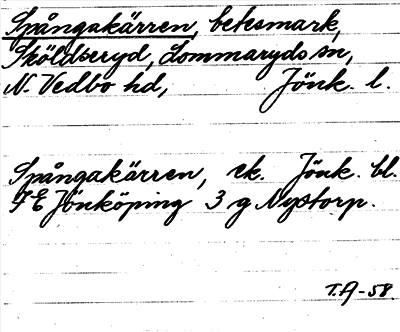 Spångakärren, betesmark,
Sköldseryd, Lommaryds sn,
N. Vedbo hd, Jönk. l.
Spångakärren, ek. Jönk. bl.
7 E Jönköping 3 g Nystorp.
T.A-58.